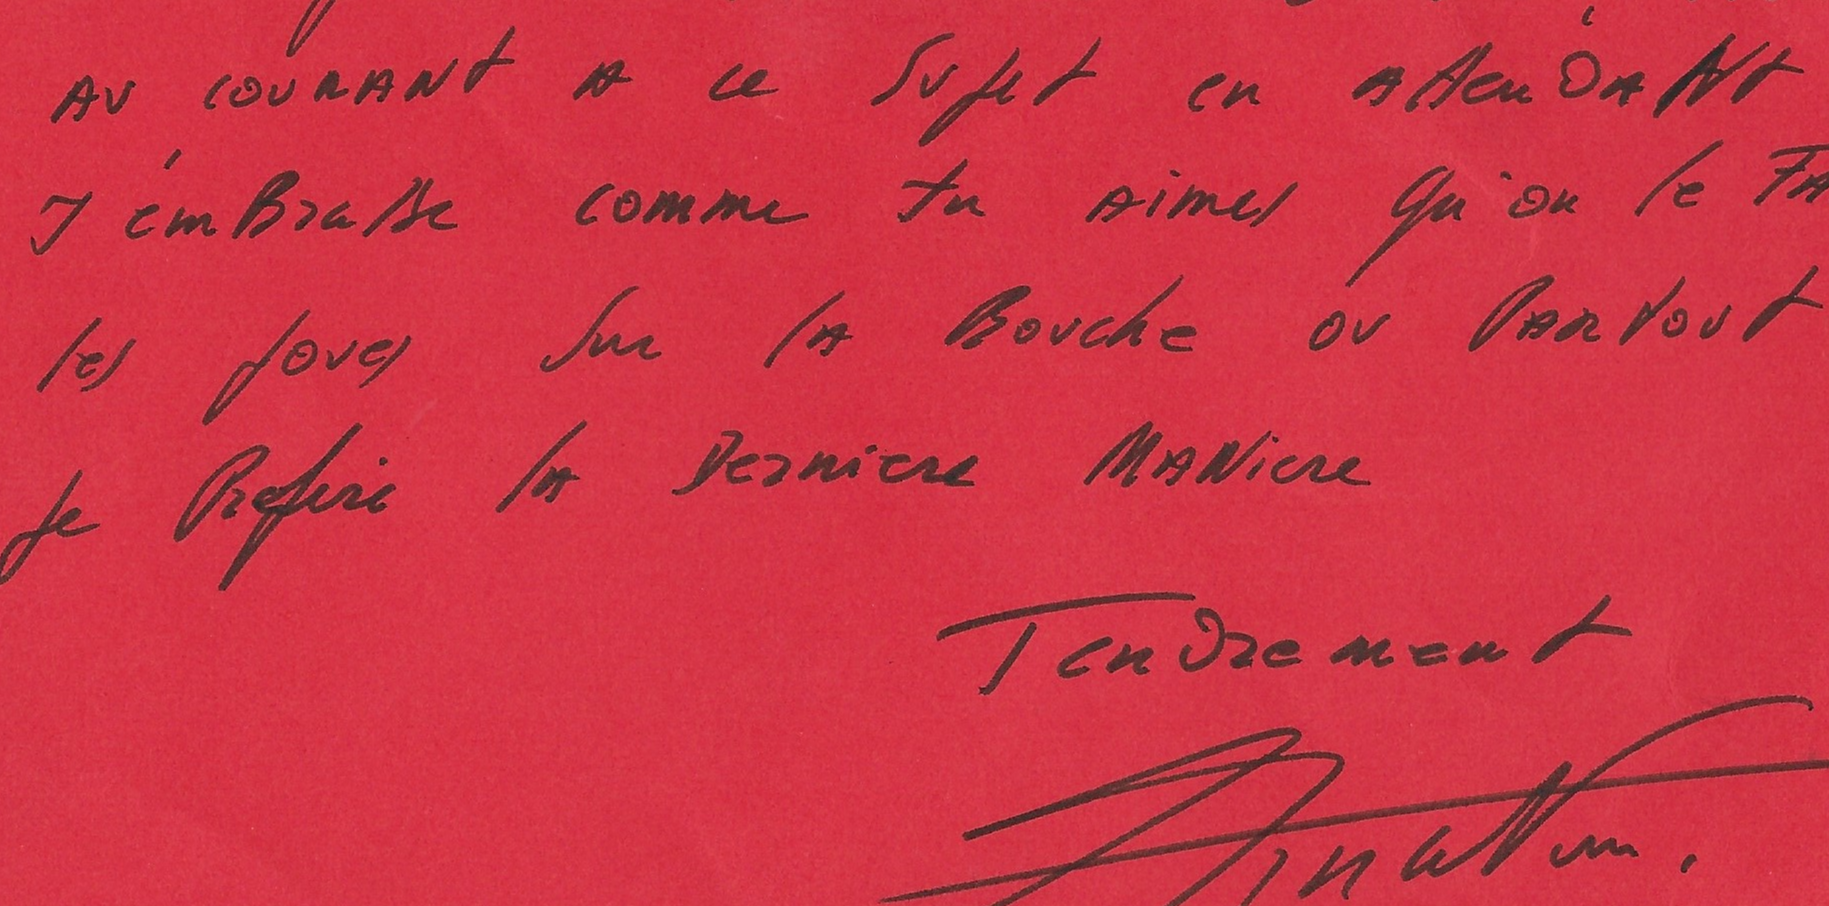 AU COURANT A ce Sujet en AttenDANt
J'emBrasse comme tu Aimes Qu'on le FA
les joues Sur lA Bouche ou PARtout
Je Prefere lA Derniere MANiere
TenDrement